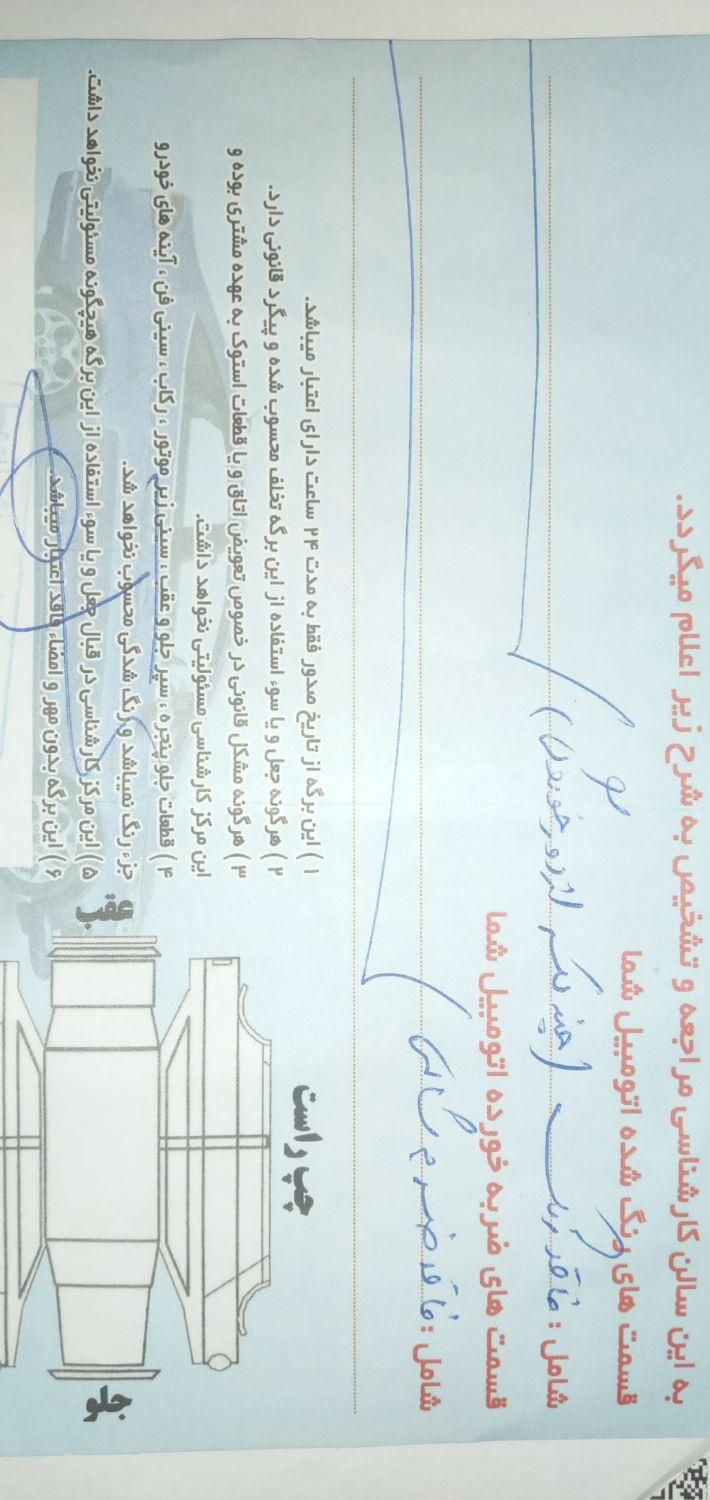 به این سالن کارشناسی مراجعه و تشخیص به شرح زیر اعلام میگردد.
قسمت های رنگ شده اتومبیل شما
شامل : فاقد رنگ
قسمت های ضربه خورده اتومبیل شما
شامل : فاقد ضربه شاسی
۱ ) این برگه از تاریخ صدور فقط به مدت ۲۴ ساعت دارای اعتبار میباشد.
۲ ) هرگونه جعل و یا سوء استفاده از این برگه تخلف محسوب شده و پیگرد قانونی دارد.
۳ ) هرگونه مشکل قانونی در خصوص تعویض اتاق و یا قطعات استوک به عهده مشتری بوده و
این مرکز کارشناسی مسئولیتی نخواهد داشت.
۴ ) قطعات جلو پنجره ، سپر جلو و عقب ، سینی زیر موتور ، رکاب ، سینی فن ، آینه های خودرو
جزء رنگ نمیباشد و رنگ شدگی محسوب نخواهد شد.
۵ ) این مرکز کارشناسی در قبال جعل و یا سوء استفاده از این برگه هیچگونه مسئولیتی نخواهد داشت.
۶ ) این برگه بدون مهر و امضاء فاقد اعتبار میباشد.
چپ راست
عقب
جلو